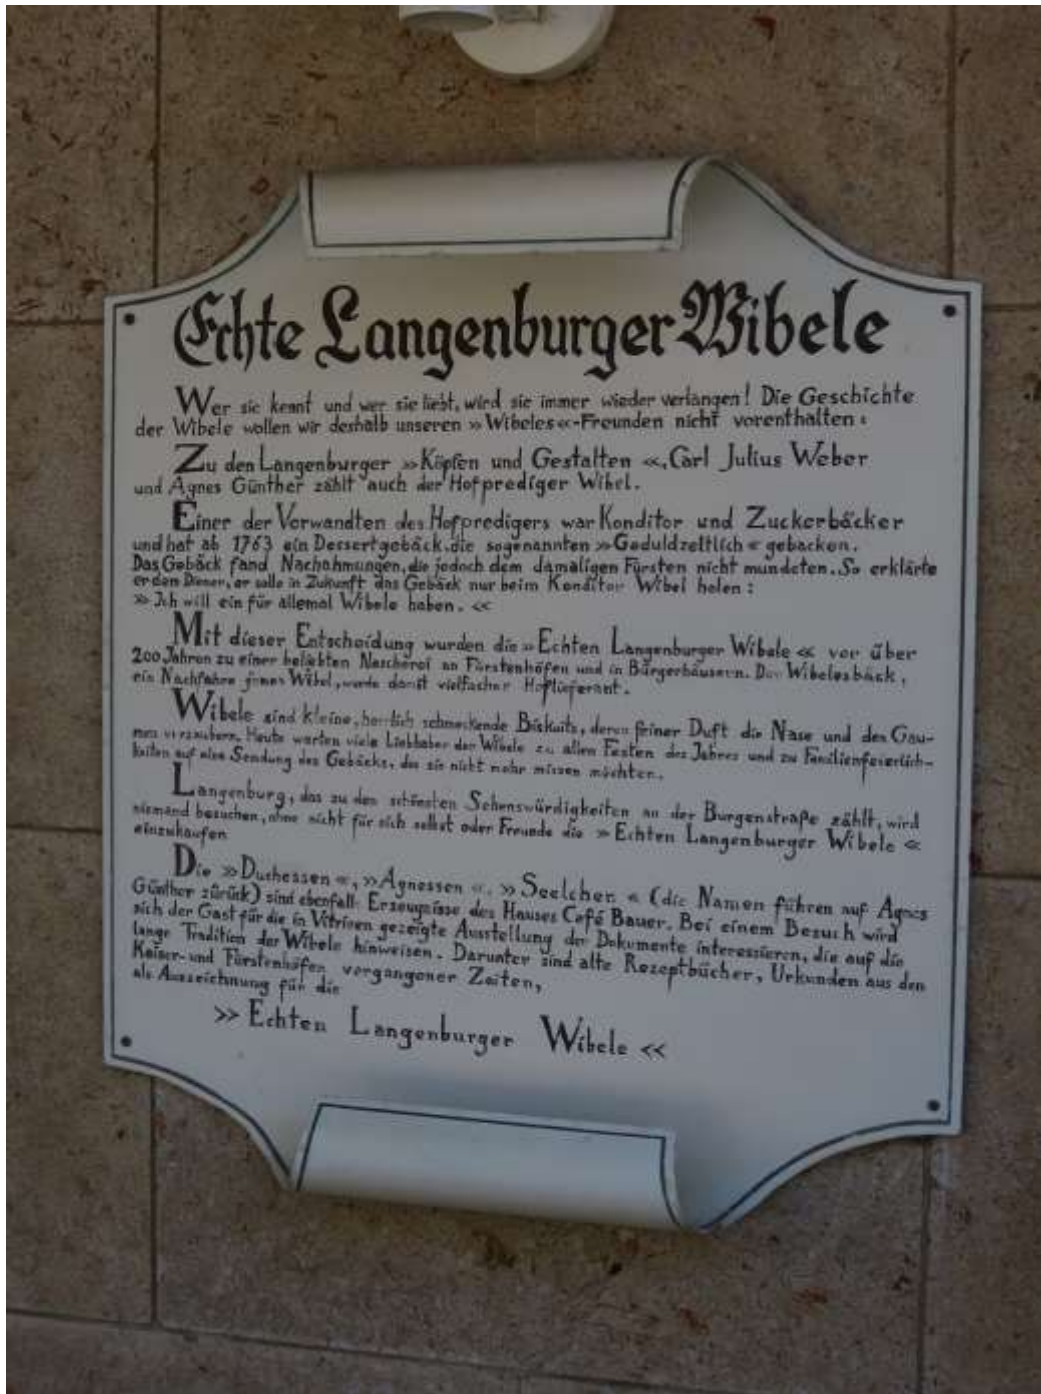 Echte Langenburger Wibele
Wer sie kennt und wer sie liebt, wird sie immer wieder verlangen! Die Geschichte
der Wibele wollen wir deshalb unseren »Wibeles«-Freunden nicht vorenthalten:
Zu den Langenburger »Köpfen und Gestalten«, Carl Julius Weber
und Agnes Günther zählt auch der Hofprediger Wibel.
Einer der Verwandten des Hofpredigers war Konditor und Zuckerbäcker
und hat ab 1763 ein Dessertgebäck, die sogenannten »Geduldzeltlich« gebacken.
Das Gebäck fand Nachahmungen, die jedoch dem damaligen Fürsten nicht mundeten. So erklärte
er den Diener, er solle in Zukunft das Gebäck nur beim Konditor Wibel holen:
»Ich will ein für allemal Wibele haben.«
Mit dieser Entscheidung wurden die »Echten Langenburger Wibele« vor über
200 Jahren zu einer beliebten Nascherei an Fürstenhöfen und in Bürgerhäusern. Der Wibelesbäck,
ein Nachfahre jenes Wibel, wurde damit vielfacher Hoflieferant.
Wibele sind kleine, herrlich schmeckende Biskuits, deren feiner Duft die Nase und den Gau-
men verzaubern. Heute warten viele Liebhaber der Wibele zu allen Festen des Jahres und zu Familienfeierlich-
keiten auf eine Sendung des Gebäcks, das sie nicht mehr missen möchten.
Langenburg, das zu den schönsten Sehenswürdigkeiten an der Burgenstraße zählt, wird
niemand besuchen, ohne nicht für sich selbst oder Freunde die »Echten Langenburger Wibele«
einzukaufen
Die »Duchessen«, »Agnessen«, »Seelchen« (die Namen führen auf Agnes
Günther zürück) sind ebenfall Erzeugnisse des Hauses Café Bauer. Bei einem Besuch wird
sich der Gast für die in Vitrinen gezeigte Ausstellung der Dokumente interessieren, die auf die
lange Tradition der Wibele hinweisen. Darunter sind alte Rezeptbücher, Urkunden aus den
Kaiser- und Fürstenhöfen vergangener Zeiten,
als Auszeichnung für die
»Echten Langenburger Wibele«